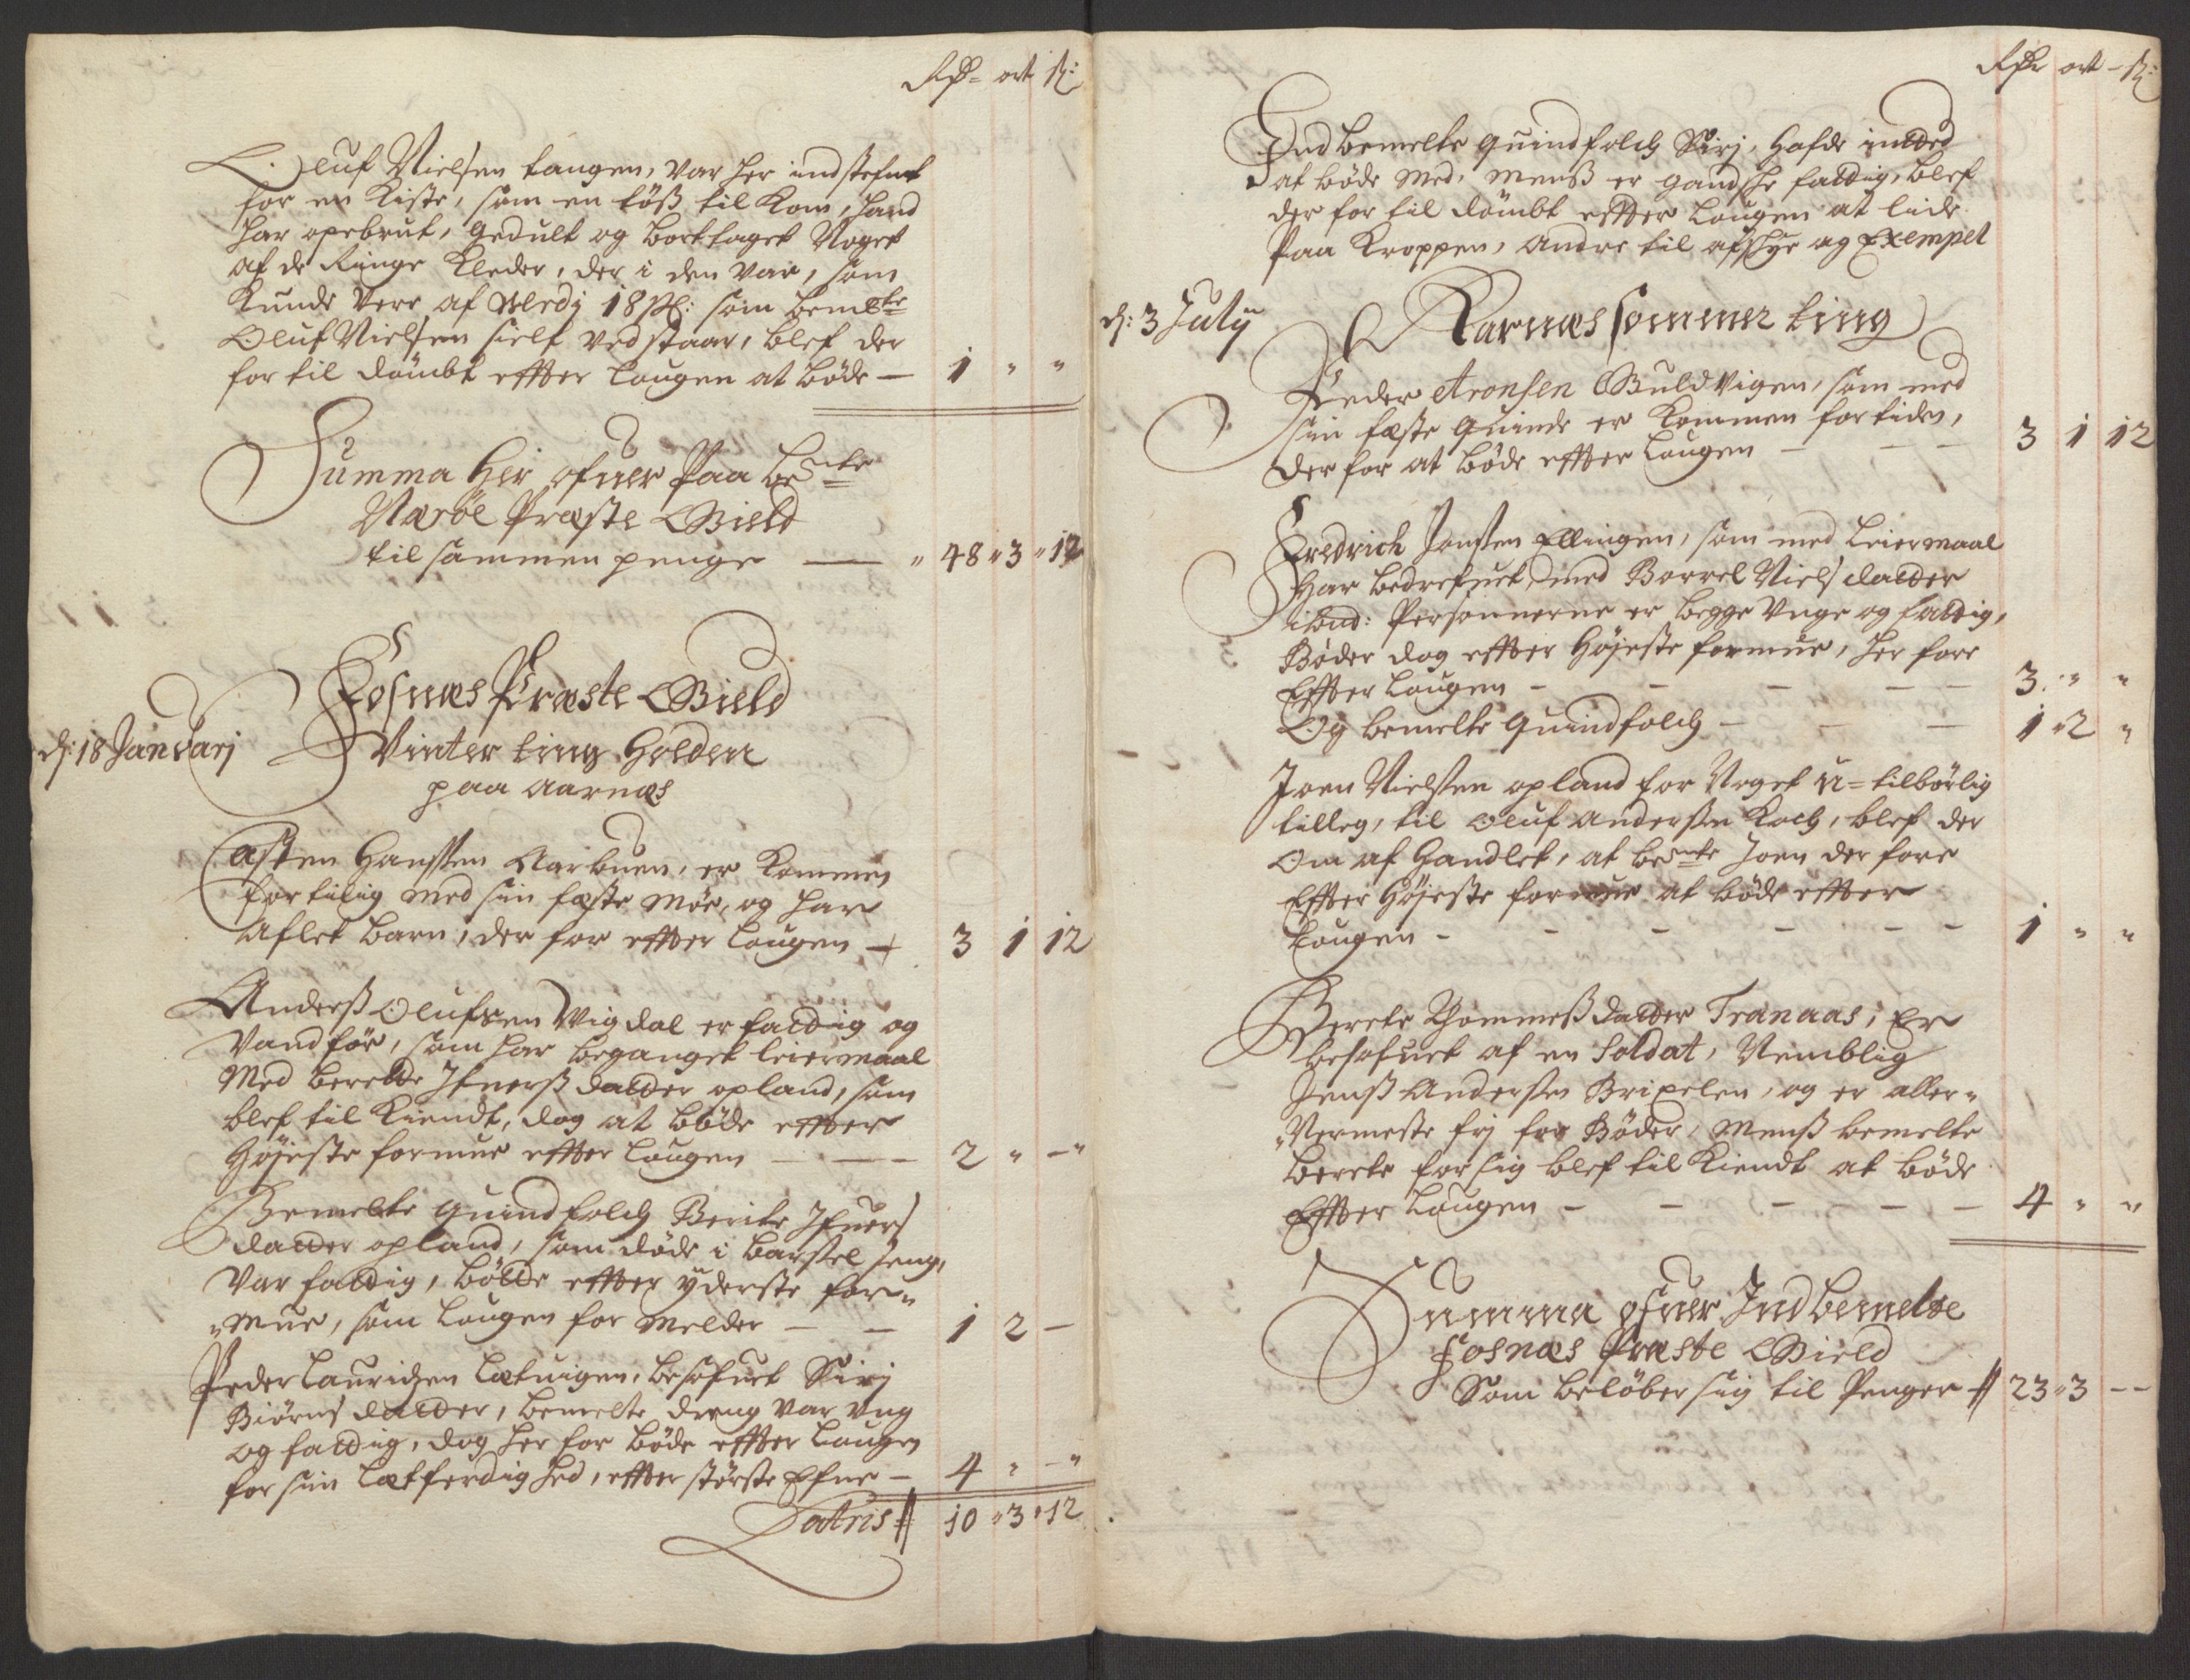 Rd= ort ß:
Oluf Nielsen tangen, var her indstefnt
for en Kiste, som en töß til Kom, hand
har opebrut, gedult og borttaget Noget
af de Ringe Kleder, der i den var, som
Kunde vere af Verdj 18 ß: som bemelte
Oluf Nielsen sielf vedstaar, blef der
for til dömbt effter Lougen at bøde — 1 " "
Summa her ofuer Paa bemte
Næröe Præste Gield
til sammen penge — " 48 " 3 " 12
Fosnæs Præste Gield
d: 18 Janvarj
Vinter ting Holden
paa Aarnæs
Casten Hansen Aarbuen, er Kommen
for tilig med sin fæste Møe, og har
aflet barn, der for effter Lougen — 3 1 12
Anderß Olufsen Vigdal er fattig og
Vandför, som har begangek leiermaal
Med beritte Ifuerß datter opland, som
blef til Kiendt, dog at bøde effter
Höjeste formue effter Lougen — 2 " — "
Bemelte quindfolch Berite Ifuers
datter opland, som døde i barsel seng,
Var fattig, bötte effter yderste for=
=mue, som Lougen for Melder — 1 2 —
Peder Lauridzen Lætuigen, besofuet Sirj
Biörns datter, bemelte dreng var ung
og fattig, dog her for bøde effter Lougen
for sin Lætferdighed, effter störste Efne — 4 " — "
Latris 10 " 3 " 12
Rdr ort - ß:
Indbemelte quindfolch Sirj, hafde intted
at bøde med, menß er gandske fattig, blef
der for til dömbt effter Lougen at lide
Paa Kroppen, andre til afskye og Exempel
d: 3 Julij
Aarnæs sommer ting
Peder Aronsen Buldvigen, som med
sin fæste quinde er Kommen for tiden,
der for at bøde effter Lougen — 3 1 12
Fredrich Jonsen Ellingen, som med Leiermaal
Har bedrefuet, med Borrel Niels datter
ibnd: Personnerne er begge Unge og fattig,
Bøder dog effter Højeste formue, her fore
Effter Lougen — 3. " "
Og bemelte quindfolch — 1 " 2 "
Joen Nielsen opland for Noget u=tilbörlig
tilleg, til Oluf Andersen Koch, blef der
Om af Handlet, at bemte Joen der fore
Effter Højeste formue at bøde effter
Lougen — 1 " "
Berete Thommeß datter Tranaas, Er
besofuet af en Soldat, Nemblig
Jenß Andersen Brixelen, og er aller=
=Nermeste frj for Bøder, menß bemelte
berete for sig blef til Kiendt at bøde
Effter Lougen — 4 " "
Summa ofuer Indbemelte
Fosnæs Præste Gield
Som beløber sig til Penger 23 " 3 — —